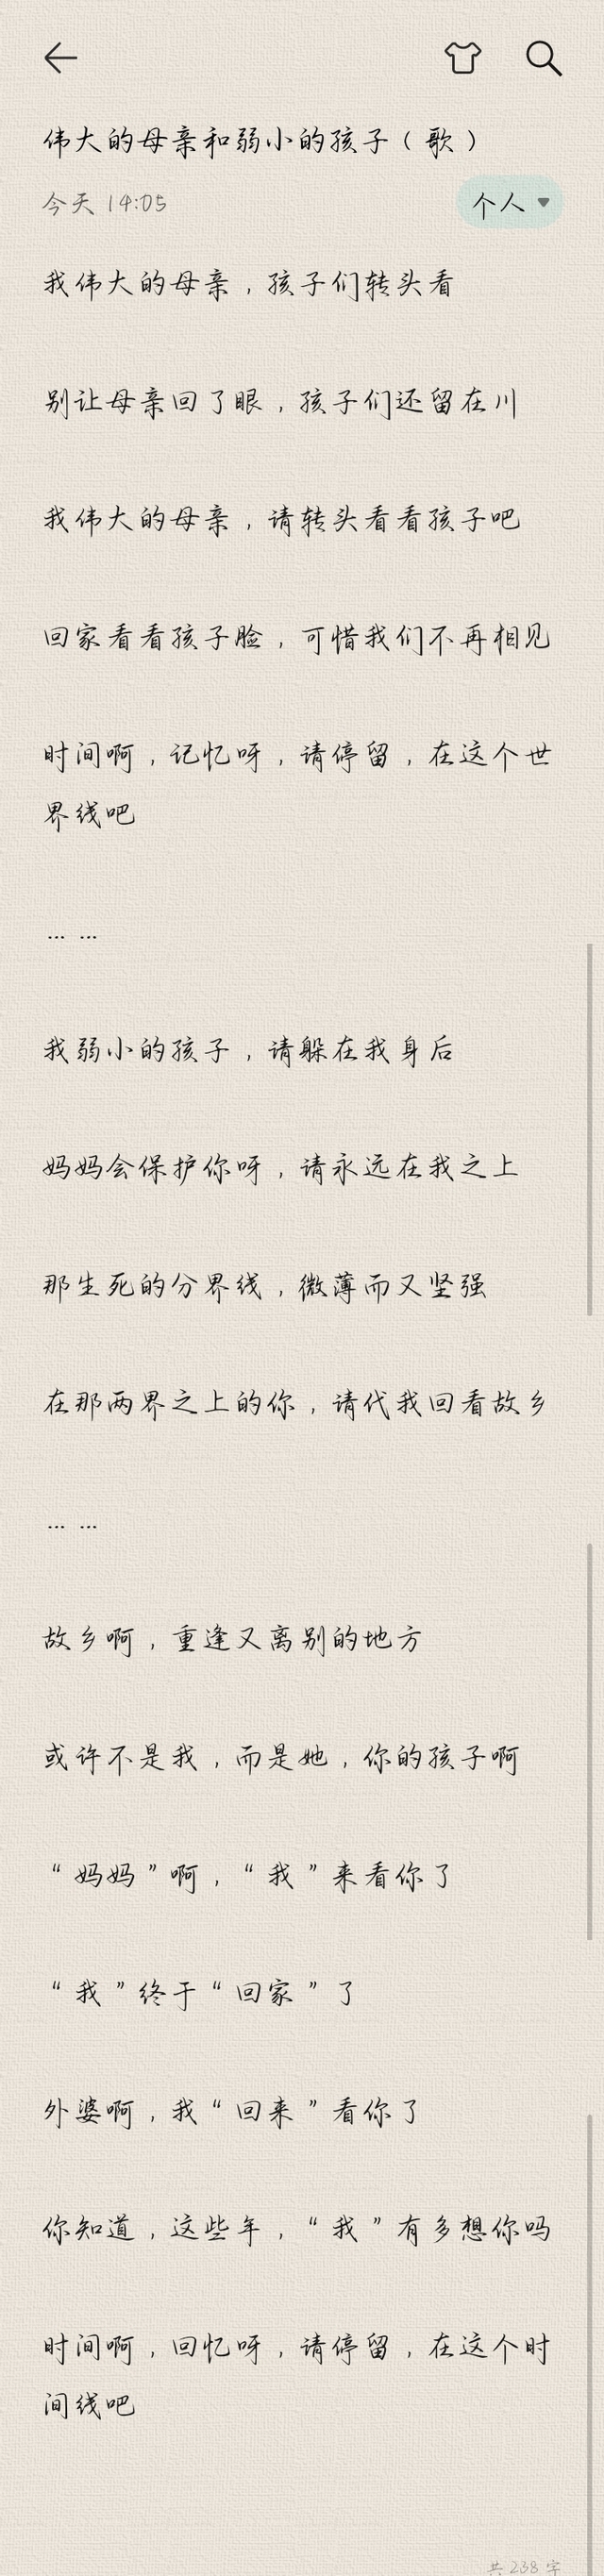 伟大的母亲和弱小的孩子（歌）
今天 14:05
个人
我伟大的母亲，孩子们转头看
别让母亲回了眼，孩子们还留在川
我伟大的母亲，请转头看看孩子吧
回家看看孩子脸，可惜我们不再相见
时间啊，记忆呀，请停留，在这个世
界线吧
… …
我弱小的孩子，请躲在我身后
妈妈会保护你呀，请永远在我之上
那生死的分界线，微薄而又坚强
在那两界之上的你，请代我回看故乡
… …
故乡啊，重逢又离别的地方
或许不是我，而是她，你的孩子啊
“妈妈”啊，“我”来看你了
“我”终于“回家”了
外婆啊，我“回来”看你了
你知道，这些年，“我”有多想你吗
时间啊，回忆呀，请停留，在这个时
间线吧
共 238 字